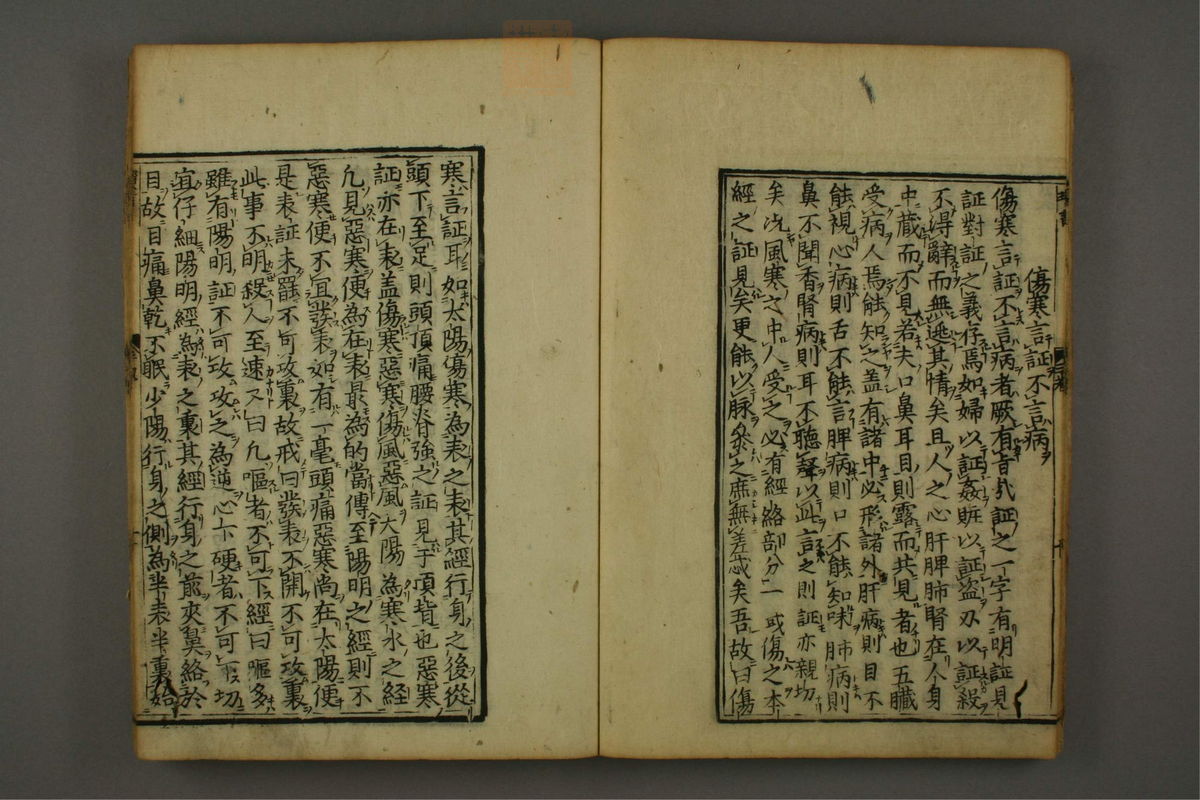 傷寒言証不言病
傷寒言証不言病者厥有旨哉証之一字有明証見
証對証之義存焉如婦以証姦賍以証盗刃以証殺
不得辭而無逃其情矣且人之心肝脾肺腎在人身
中蔵而不見若夫口鼻耳目則露而共見者也五臓
受病人焉能知之盖有諸中必形諸外肝病則目不
能視心病則舌不能言脾病則口不能知味肺病則
鼻不聞香腎病則耳不聴聲以此言之則証亦親切
矣况風寒之中人受之必有經絡部分一或傷之本
經之証見矣更能以脉参之庶無差忒矣吾故曰傷
寒言証耳如太陽傷寒為表之表其經行身之後從
頭下至足則頭項痛腰脊強之証見于項背也惡寒
証亦在表盖傷寒惡寒傷風惡風太陽為寒水之経
凡見惡寒便為在表最為的當傳至陽明之經則不
惡寒便不宜發表如有一毫頭痛惡寒尚在太陽便
是表証未罷不可攻裏故戒曰發表不開不可攻裏
此事不明殺人至速又曰凡嘔者不可下經曰嘔多
雖有陽明証不可攻攻之為逆心下硬者不可下切
宜仔細陽明經為表之裏其經行身之前夾鼻絡於
目故目痛鼻乾不眠少陽行身之側為半表半裏始